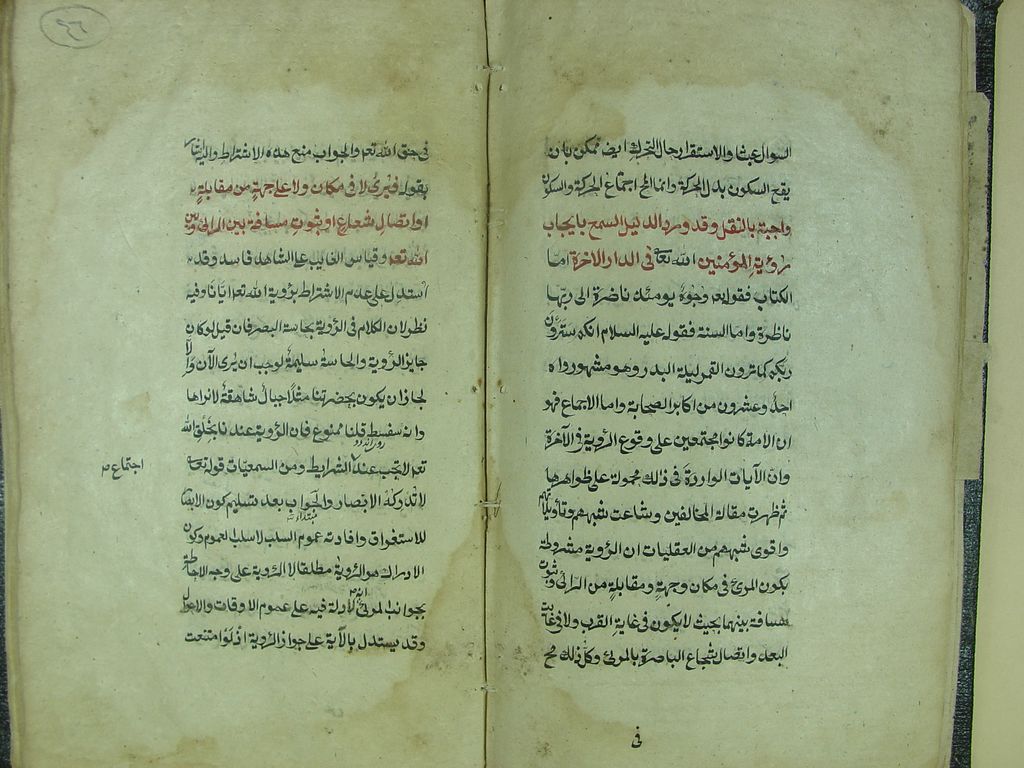 السوال عبثا والاستقرار حال التحرك ايض ممكن بان
يقع السكون بدل الحركة وانما المح اجتماع الحركة والسكون
واجبة بالنقل وقد ورد الدليل السمع بايجاب
رؤية المؤمنين الله تعالى فى الدار الآخرة اما
الكتاب فقوله تعم وجوه يومئذ ناضرة الى ربها
ناظرة واما السنة فقوله عليه السلام انكم سترون
ربكم كما ترون القمر ليلة البدر وهو مشهور رواه
احد وعشرون من اكابر الصحابة واما الاجماع فهو
ان الامة كانوا مجتمعين على وقوع الرؤية فى الآخرة
وان الآيات الواردة فى ذلك محمولة على ظواهرها
ثم ظهرت مقالة المخالفين وشاعت شبههم وتأويلاتهم
واقوى شبههم من العقليات ان الرؤية مشروطة
بكون المرئ فى مكان وجهة ومقابلة من الرائى وثبوت
مسافة بينهما بحيث لا يكون فى غاية القرب ولا فى غاية
البعد واتصال شعاع الباصرة بالمرئى وكل ذلك مح
فى
٤٦
فى حق الله تعم والجواب منع هذه الاشتراط واليه اشار
بقوله فيرى لا فى مكان ولا على جهة من مقابلة
او اتصال شعاع او ثبوت مسافة بين الرائى وبين
الله تعم وقياس الغايب على الشاهد فاسد وقد
استدل على عدم الاشتراط برؤية الله تعم ايانا وفيه
نظر لان الكلام فى الرؤية بحاسة البصر فان قيل لو كان
جايز الرؤية والحاسة سليمة لوجب ان يرى الآن والا
لجاز ان يكون بحضرتنا مثلا جبال شاهقة لا نراها
وانه سفسطة قلنا ممنوع فان الرؤية عندنا بخلق الله
تعم لا تجب عند الشرايط ومن السمعيات قوله تعالى
اجتماع ص
لا تدركه الابصار والجواب بعد تسليم كون الابصار
للاستغراق وافادته عموم السلب لا سلب العموم وكون
الادراك هو الرؤية مطلقا لا الرؤية على وجه الاحاطة
بجوانب المرئى لا دلة فيه على عموم الاوقات والاحوال
وقد يستدل بالآية على جواز الرؤية اذ لو امتنعت